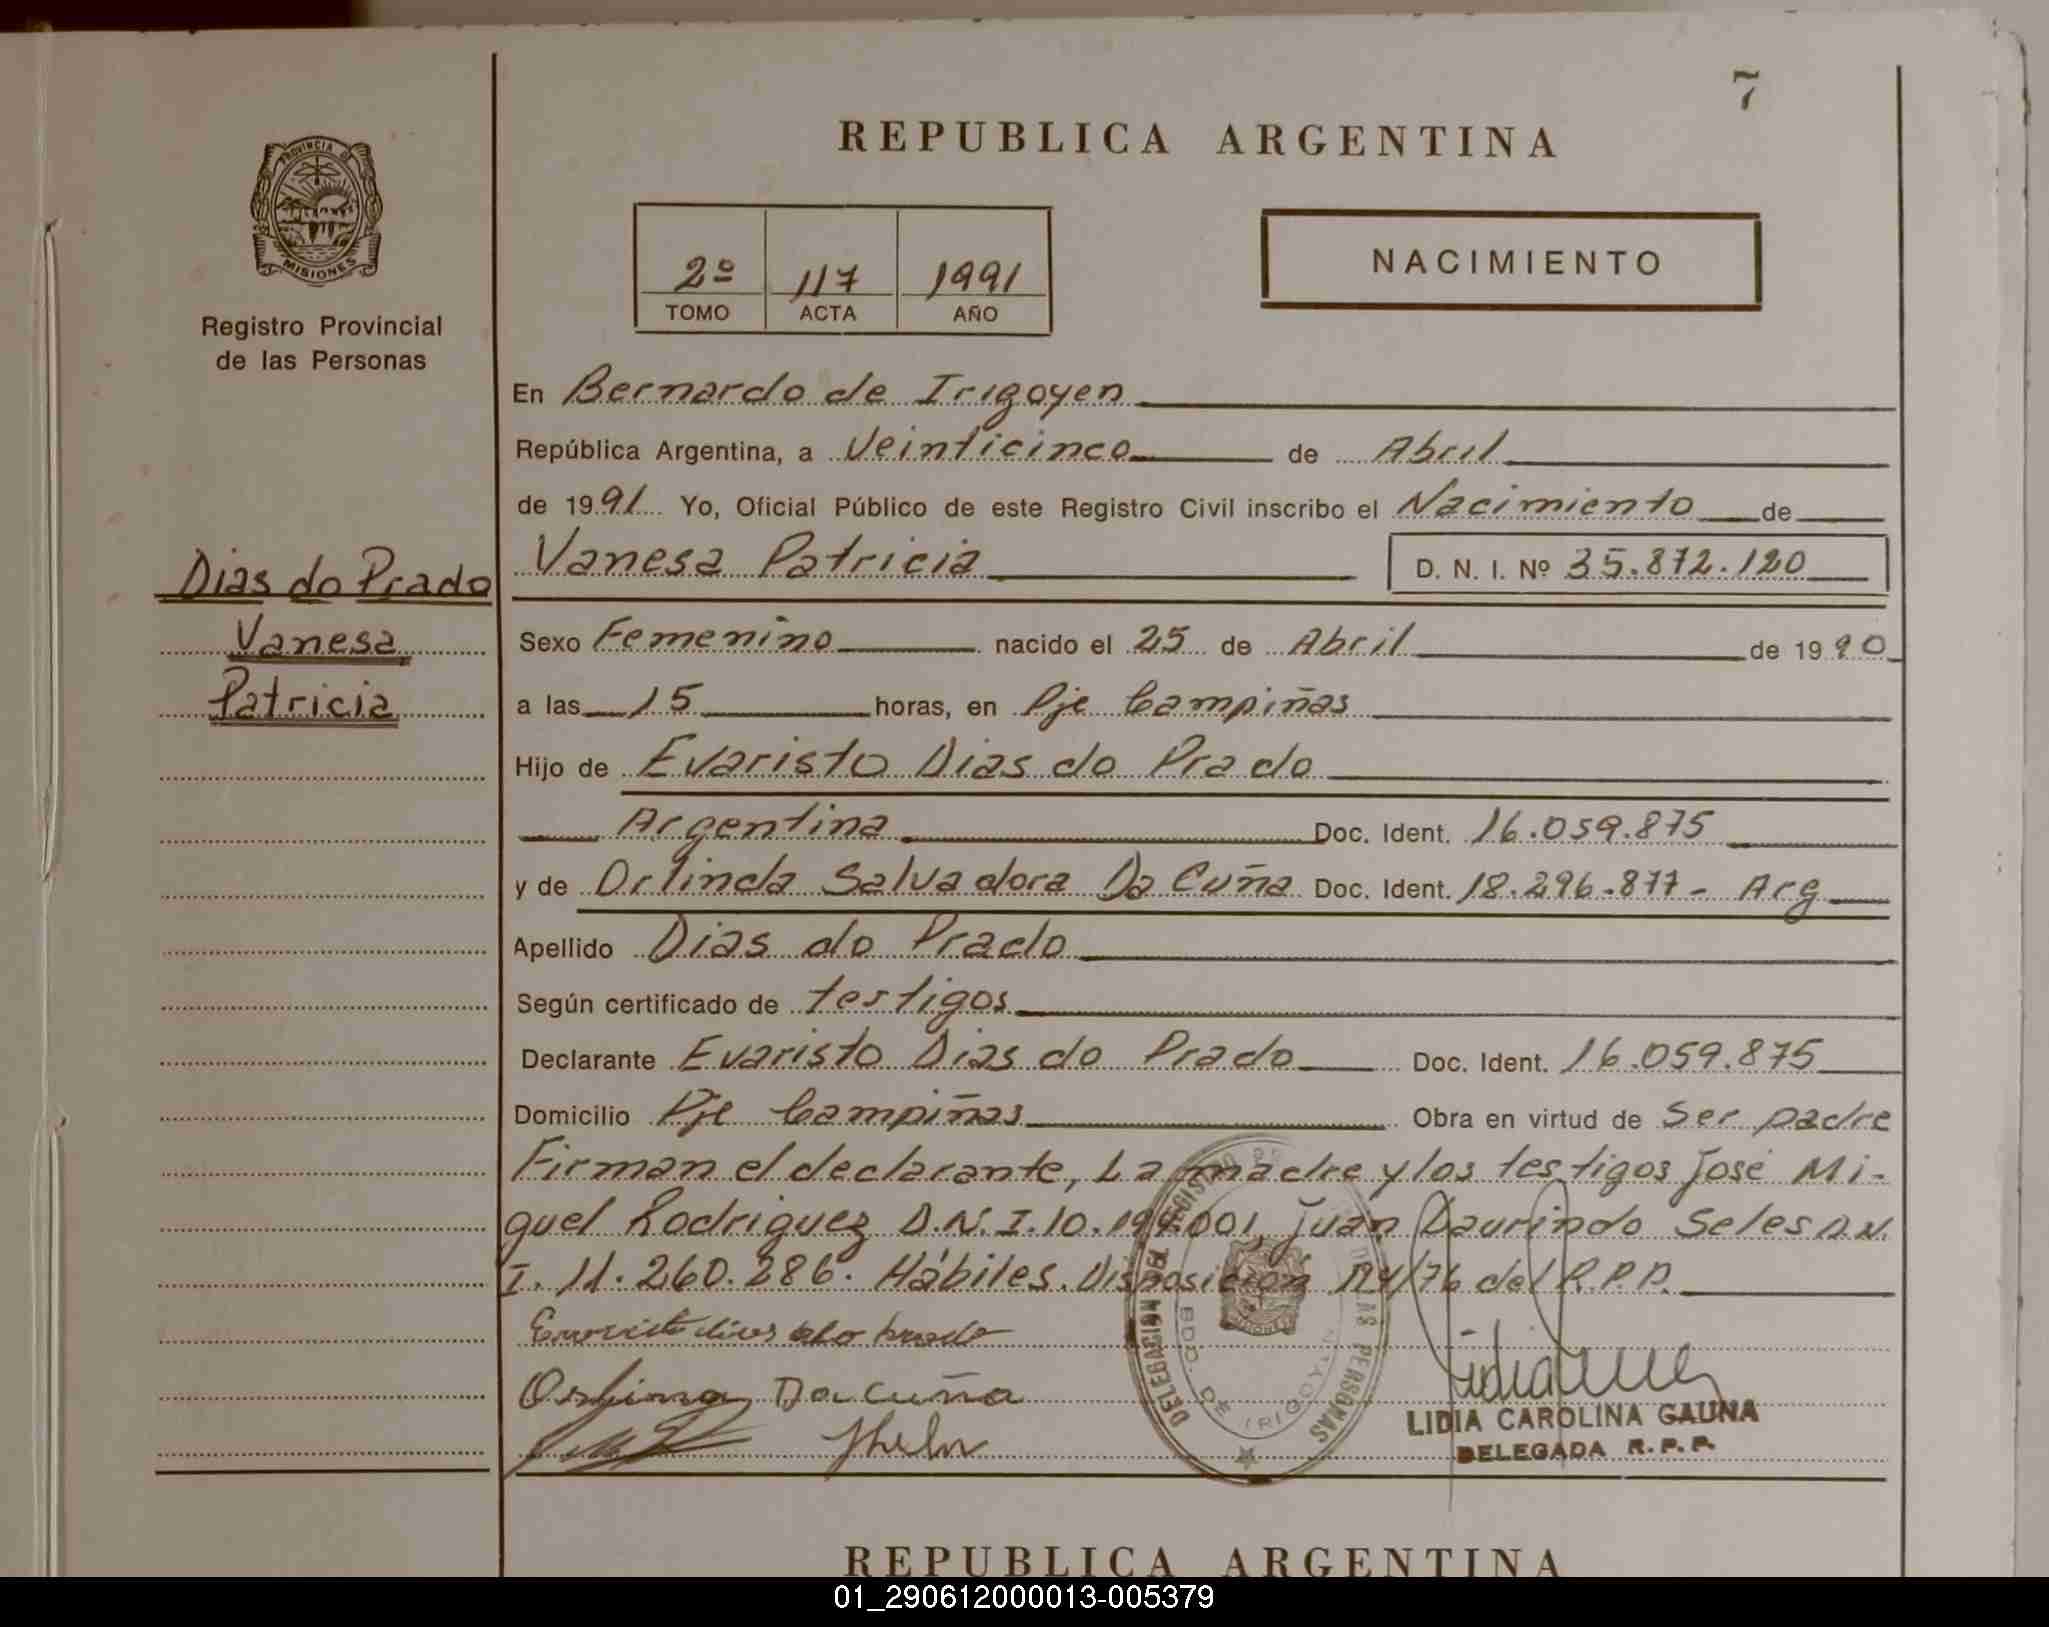 7
REPUBLICA ARGENTINA
PROVINCIA DE
MISIONES
Registro Provincial
de las Personas
2º 117 1991
TOMO ACTA AÑO
NACIMIENTO
En Bernardo de Irigoyen
República Argentina, a Veinticinco de Abril
de 1991 Yo, Oficial Público de este Registro Civil inscribo el Nacimiento de
Vanesa Patricia D. N. I. Nº 35.872.120
Dias do Prado
Vanesa
Patricia
Sexo Femenino nacido el 25 de Abril de 1990
a las 15 horas, en Pje Campiñas
Hijo de Evaristo Dias do Prado
Argentina Doc. Ident. 16.059.875
y de Orlinda Salvadora Da Cuña Doc. Ident. 18.296.877- Arg
Apellido Dias do Prado
Según certificado de testigos
Declarante Evaristo Dias do Prado Doc. Ident. 16.059.875
Domicilio Pje Campiñas Obra en virtud de Ser padre
Firman el declarante, La madre y los testigos José Mi-
guel Rodriguez D.N.I. Juan Daurindo Seles D.N.
I. 11.260.286. Hábiles. Disposición 124/76 del R.P.P.
Evaristo dias do prado
Da cuña
DELEGACION PERSONAS
BDO. DE IRIGOYEN
LIDIA CAROLINA GAUNA
DELEGADA R.P.P.
REPUBLICA ARGENTINA
01_290612000013-005379